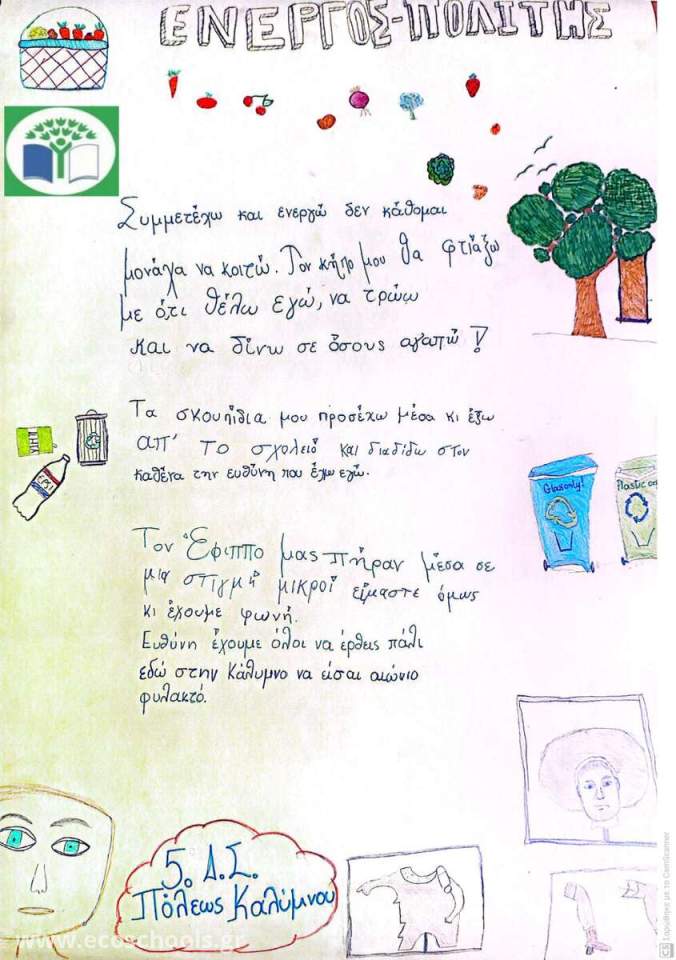 ΕΝΕΡΓΟΣ-ΠΟΛΙΤΗΣ
Συμμετέχω και ενεργώ δεν κάθομαι
μονάχα να κοιτώ. Τον κήπο μου θα φτιάξω
με ότι θέλω εγώ, να τρώω
και να δίνω σε όσους αγαπώ!
Τα σκουπίδια μου προσέχω μέσα κι έξω
απ' το σχολείο και διαδίδω στον
καθένα την ευθύνη που έχω εγώ.
Glass only!
Plastic on
Τον Έφιππο μας πήραν μέσα σε
μια στιγμή μικροί είμαστε όμως
κι έχουμε φωνή.
Ευθύνη έχουμε όλοι να έρθεις πάλι
εδώ στην Κάλυμνο να είσαι αιώνιο
φυλακτό.
5ο Δ.Σ.
Πόλεως Καλύμνου
www.ecoschools.gr
CS Σαρώθηκε με το CamScanner